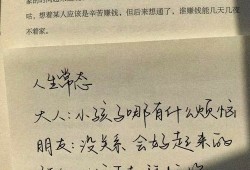 咕，想着某人应该是辛苦赚钱，但后来想通了，谁赚钱能几天几夜
不着家。
人生常态
大人：小孩子哪有什么烦恼
朋友：没关系 会好起来的